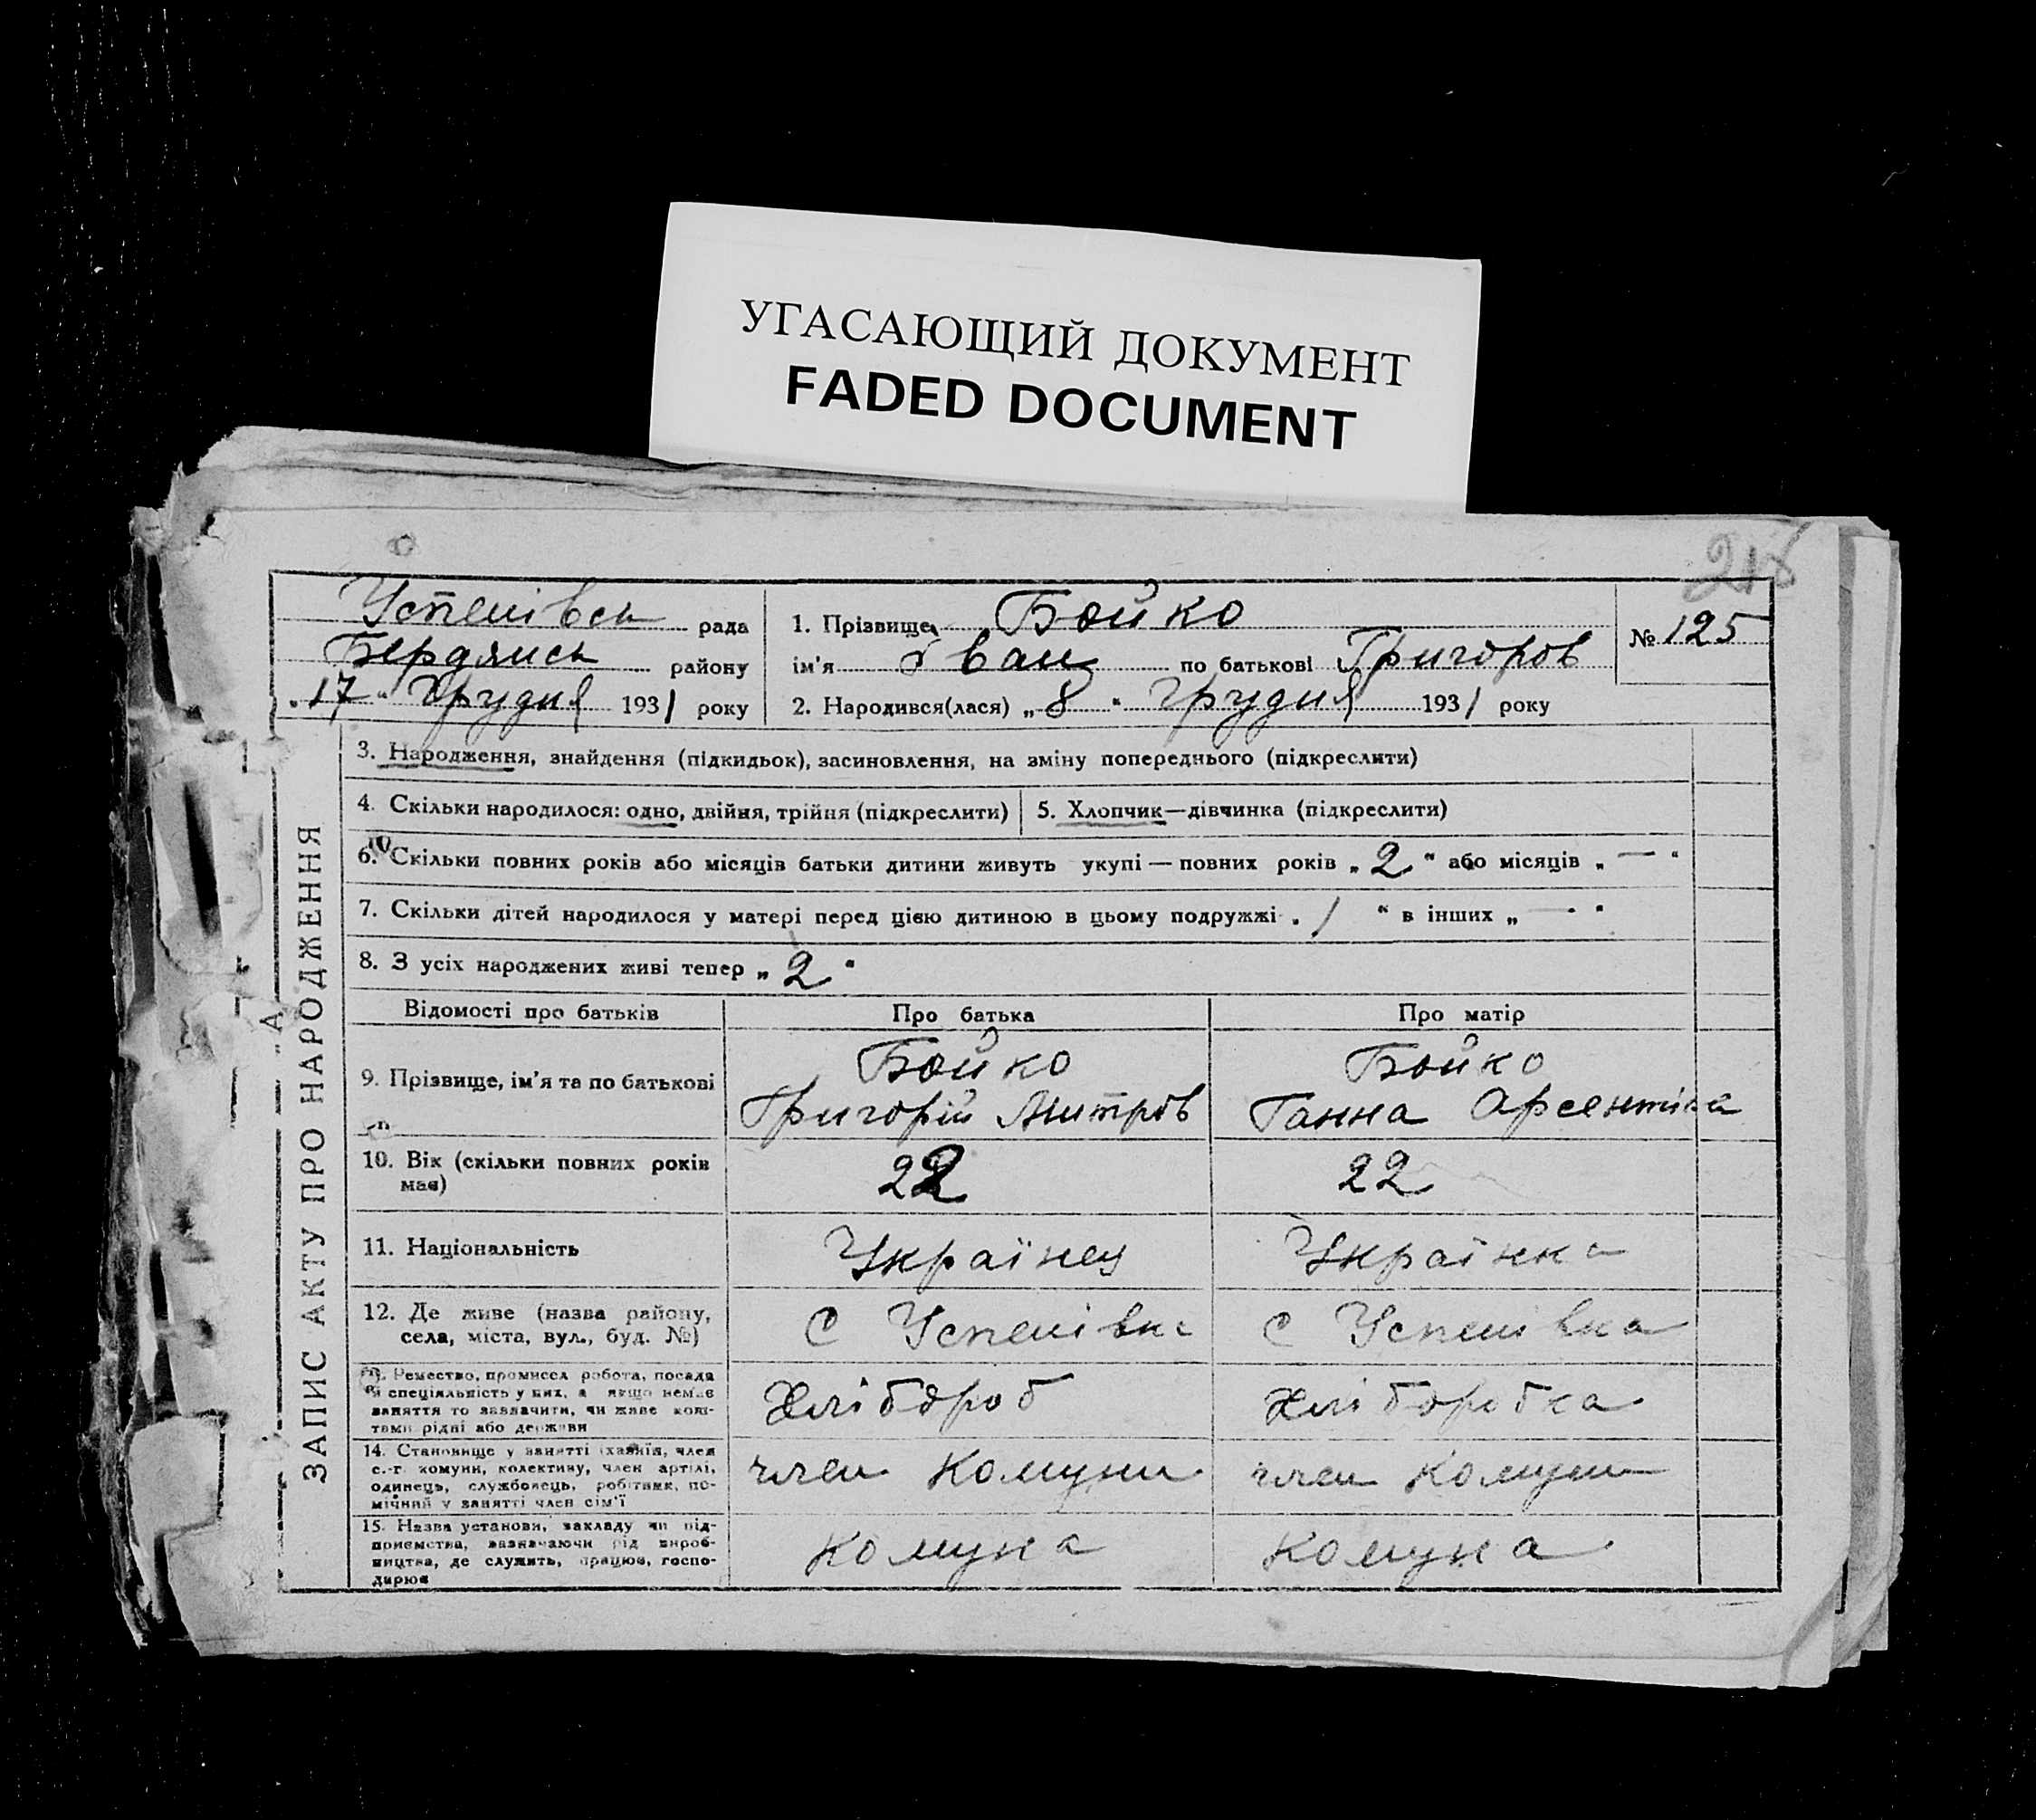 УГАСАЮЩИЙ ДОКУМЕНТ
FADED DOCUMENT
218
Успенівськ рада
Бердянськ району
„17“ Грудня 1931 року
1. Прізвище Бойко
ім'я Іван по батькові Григоров
2. Народився(лася) „8“ Грудня 1931 року
№ 125
ЗАПИС АКТУ ПРО НАРОДЖЕННЯ
3. Народження, знайдення (підкидьок), засиновлення, на зміну попереднього (підкреслити)
4. Скільки народилося: одно, двійня, трійня (підкреслити) 5. Хлопчик—дівчинка (підкреслити)
6. Скільки повних років або місяців батьки дитини живуть укупі — повних років „2“ або місяців „—“
7. Скільки дітей народилося у матері перед цією дитиною в цьому подружжі „1“ в інших „—“
8. З усіх народжених живі тепер „2“
Відомості про батьків Про батька Про матір
9. Прізвище, ім'я та по батькові
Бойко
Григорій Митров
Бойко
Ганна Арсентівна
10. Вік (скільки повних років
має)
22 22
11. Національність Українец Українка
12. Де живе (назва району,
села, міста, вул., буд. №)
с Успенівка с Успенівка
13. Ремество, промисел робота, посада
й спеціяльність у них, а якщо немає
заняття то зазначити, чи живе кош-
тами рідні або держави
Хлібороб Хліборобка
14. Становище у занятті (хазяїн, член
с.-г. комуни, колективу, член артілі,
одинець, службовець, робітник, по-
мічний у занятті член сім'ї
член Комуни член Комуни
15. Назва установи, закладу чи під-
приємства, зазначаючи рід вироб-
ництва, де служить, працює, госпо-
дарює
Комуна Комуна